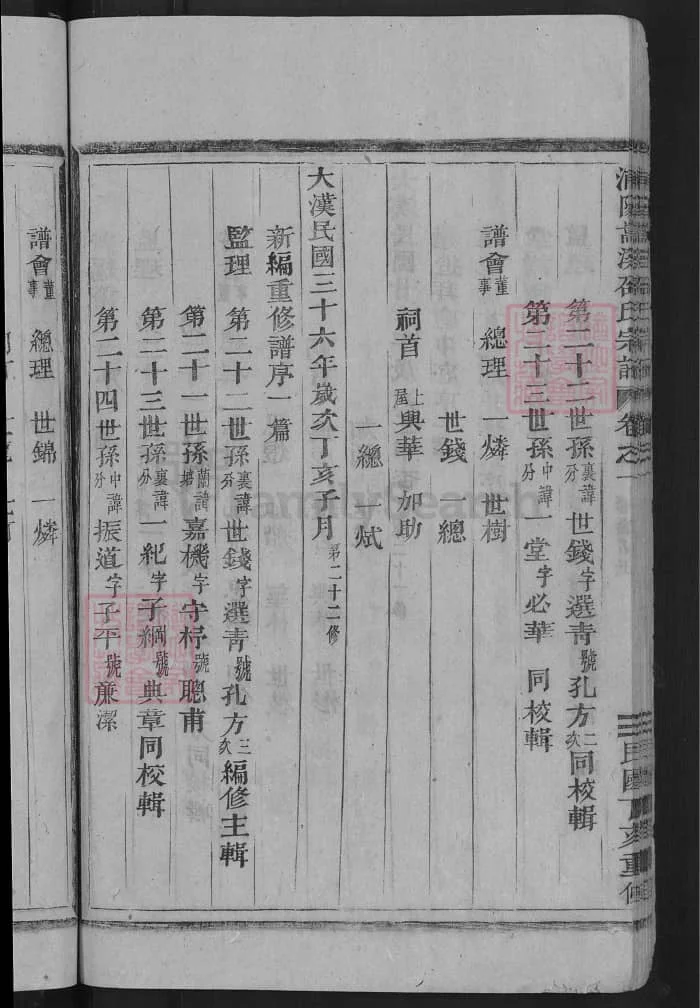 浦陽嵩溪邵氏宗譜 卷之一 民國丁亥重修
第二十二世孫裏分諱世錢字選青號孔方二次同校輯
第二十三世孫中分諱一堂字必華 同校輯
譜會董事 總理 一燐 世樹
世錢 一總
祠首 上屋 興華 加助
一總 一斌
大漢民國三十六年歲次丁亥子月第二十二修
新編重修譜序一篇
監理 第二十二世孫裏分諱世錢字選青號孔方三次編修主輯
第二十一世孫蘭塘諱嘉機字守杼號聰甫
第二十三世孫裏分諱一紀字子綱號典章同校輯
第二十四世孫中分諱振道字子平號廉潔
譜會董事 總理 世錦 一燐